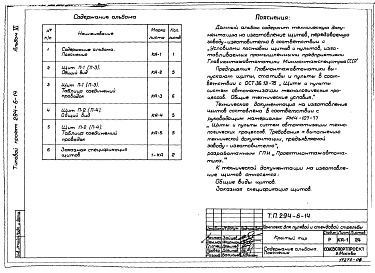 Альбом VI
Типовой проект 294-6-14
Содержание альбома
№ п/п
Наименование
Марка листа
Кол. листов
1 Содержание альбома. Пояснения КА-1 1
2 Щит П-1 (П-3). Общий вид КА-2 5
3 Щит П-1 (П-3). Таблица соединений проводок КА-3 6
4 Щит П-2 (П-4). Общий вид КА-4 5
5 Щит П-2 (П-4). Таблица соединений проводок КА-5 5
6 Заказная спецификация щитов 1-КА 2
Пояснения:
Данный альбом содержит техническую доку-
ментацию на изготовление щитов, передаваемую
заводу-изготовителю в соответствии с
„Условиями поставки щитов и пультов, изго-
тавливаемых промышленными предприятиями
Главмонтажавтоматики Минмонтажспецстроя СССР"
Предприятия Главмонтажавтоматики вы-
пускают щиты, стативы и пульты в соот-
ветствии с ОСТ 36.13-76 „Щиты и пульты
систем автоматизации технологических про-
цессов. Общие технические условия."
Техническая документация на изготовление
щитов составлена в соответствии с
руководящим материалом РМ4-107-77
„Щиты и пульты систем автоматизации техно-
логических процессов. Требования к выполнению
технической документации, передаваемой
заводу-изготовителю",
разработанным ГПИ „Проектмонтажавтома-
тика."
К технической документации на изготовле-
ние щитов относятся:
Общие виды щитов.
Заказная спецификация щитов.
Т.П. 294-6-14
Крытый тир
Р КА-1 24
Содержание альбома.
Пояснения
СОЮЗСПОРТПРОЕКТ
г. Москва